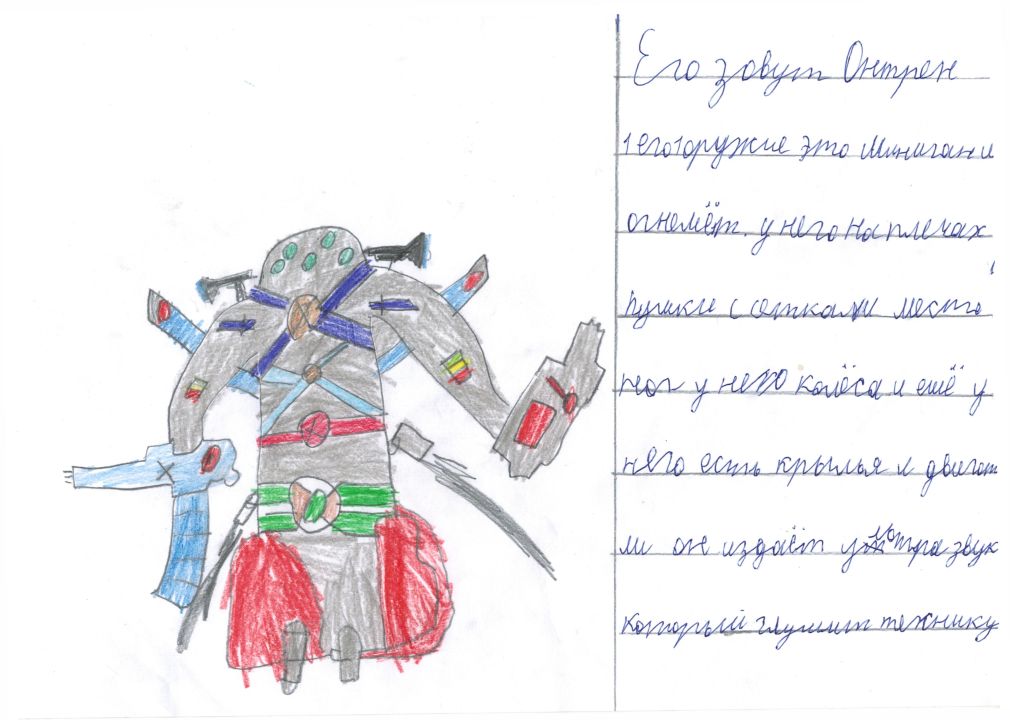 Его зовут Онтрен
его оружие это Миниган и
огнемёт. у него на плечах
пушки с сотками места
ног у него колёса и ешё у
него есть крылья и двигат
ли он издаёт ультра звук
который глушит технику